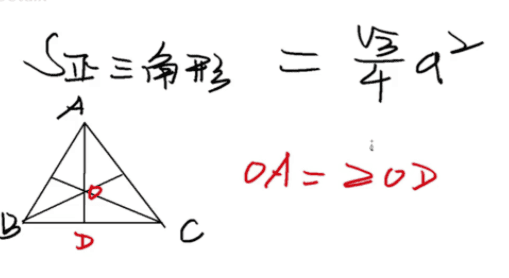 S正三角形 = √3/4 a²
A
O
B
D
C
OA = 2OD